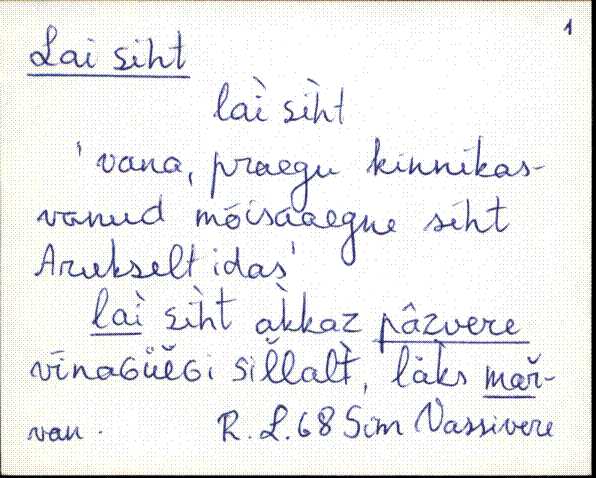 1
Lai siht
laì sìht
'vana, praegu kinnikas-
vanud mõisaaegne siht
Arukselt idas'
laì sìht àkkaz pâzvere
vīnaGüĕGi sĭllalt̀, läks mař-
van. R. L. 68 Sim Vassivere